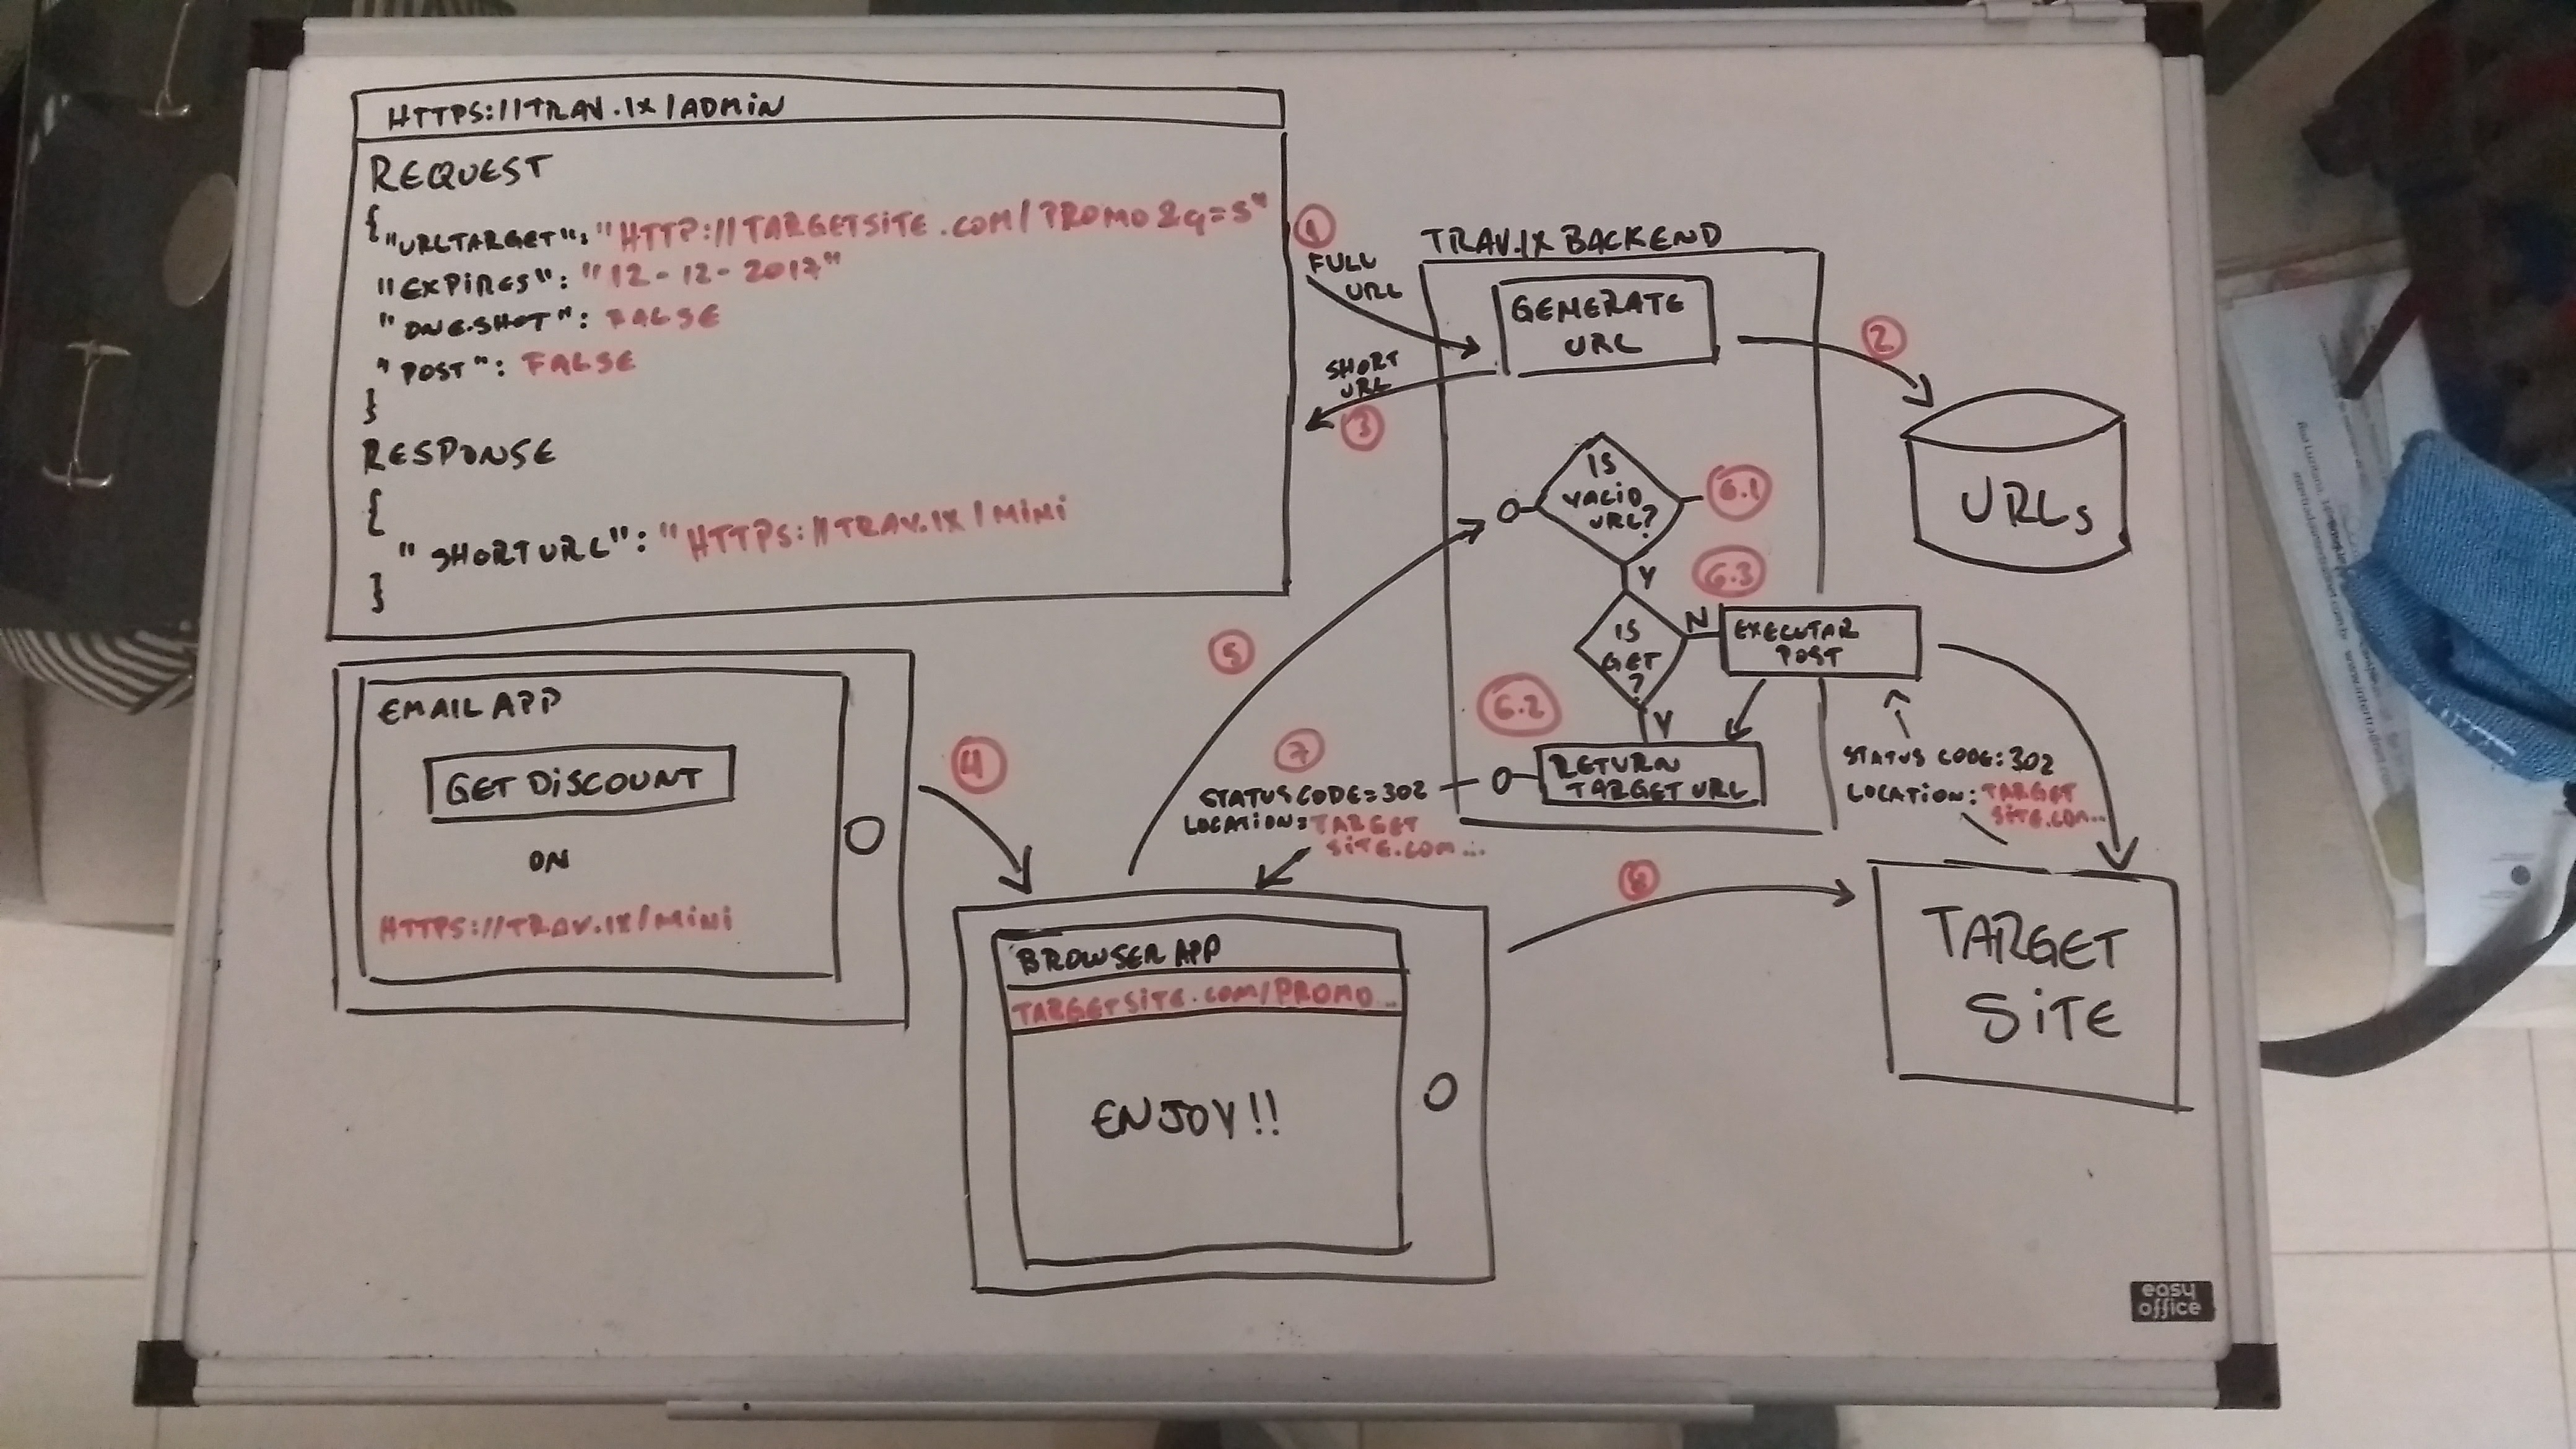 HTTPS://TRAV.IX/ADMIN
REQUEST
{
"URLTARGET": "HTTP://TARGETSITE.COM/PROMO&q=S"
"EXPIRES": "12-12-2017"
"ONE.SHOT": FALSE
"POST": FALSE
}
RESPONSE
{
"SHORTURL": "HTTPS://TRAV.IX/MINI
}
1
FULL
URL
SHORT
URL
3
TRAV.IX BACKEND
GENERATE
URL
2
URLs
IS
VALID
URL?
6.1
Y
6.3
IS
GET
?
N
EXECUTAR
POST
Y
6.2
RETURN
TARGET URL
5
7
STATUS CODE=302
LOCATION: TARGET
SITE.COM...
STATUS CODE: 302
LOCATION: TARGET
SITE.COM...
EMAIL APP
GET DISCOUNT
ON
HTTPS://TRAV.IX/MINI
4
BROWSER APP
TARGETSITE.COM/PROMO...
ENJOY!!
8
TARGET
SITE
easy
office